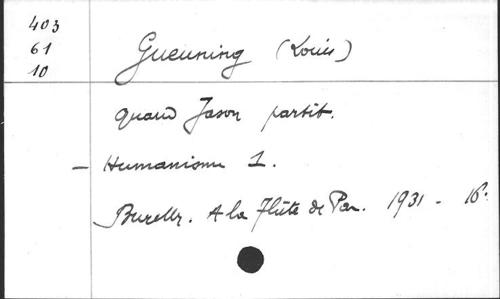 403
61
10
Gueuning (Louis)
Quand Jason partit.
– Humanisme 1.
Bruxelles. A la Flûte de Pan. 1931 – 16°.